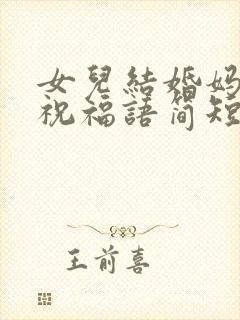 女兒結婚妈
祝福語简短
王前喜